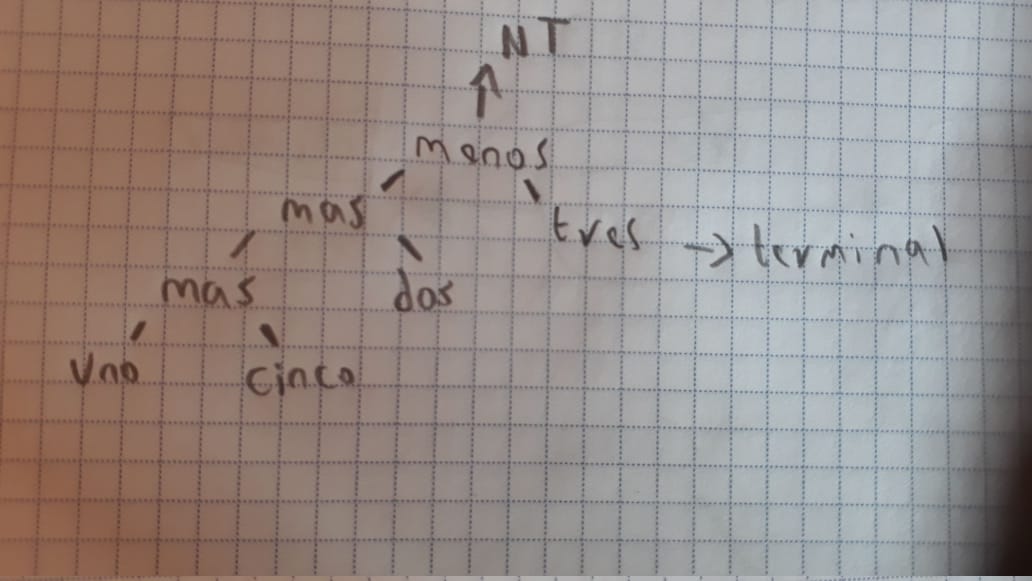 NT
menos
mas
tres → terminal
mas dos
uno cinco